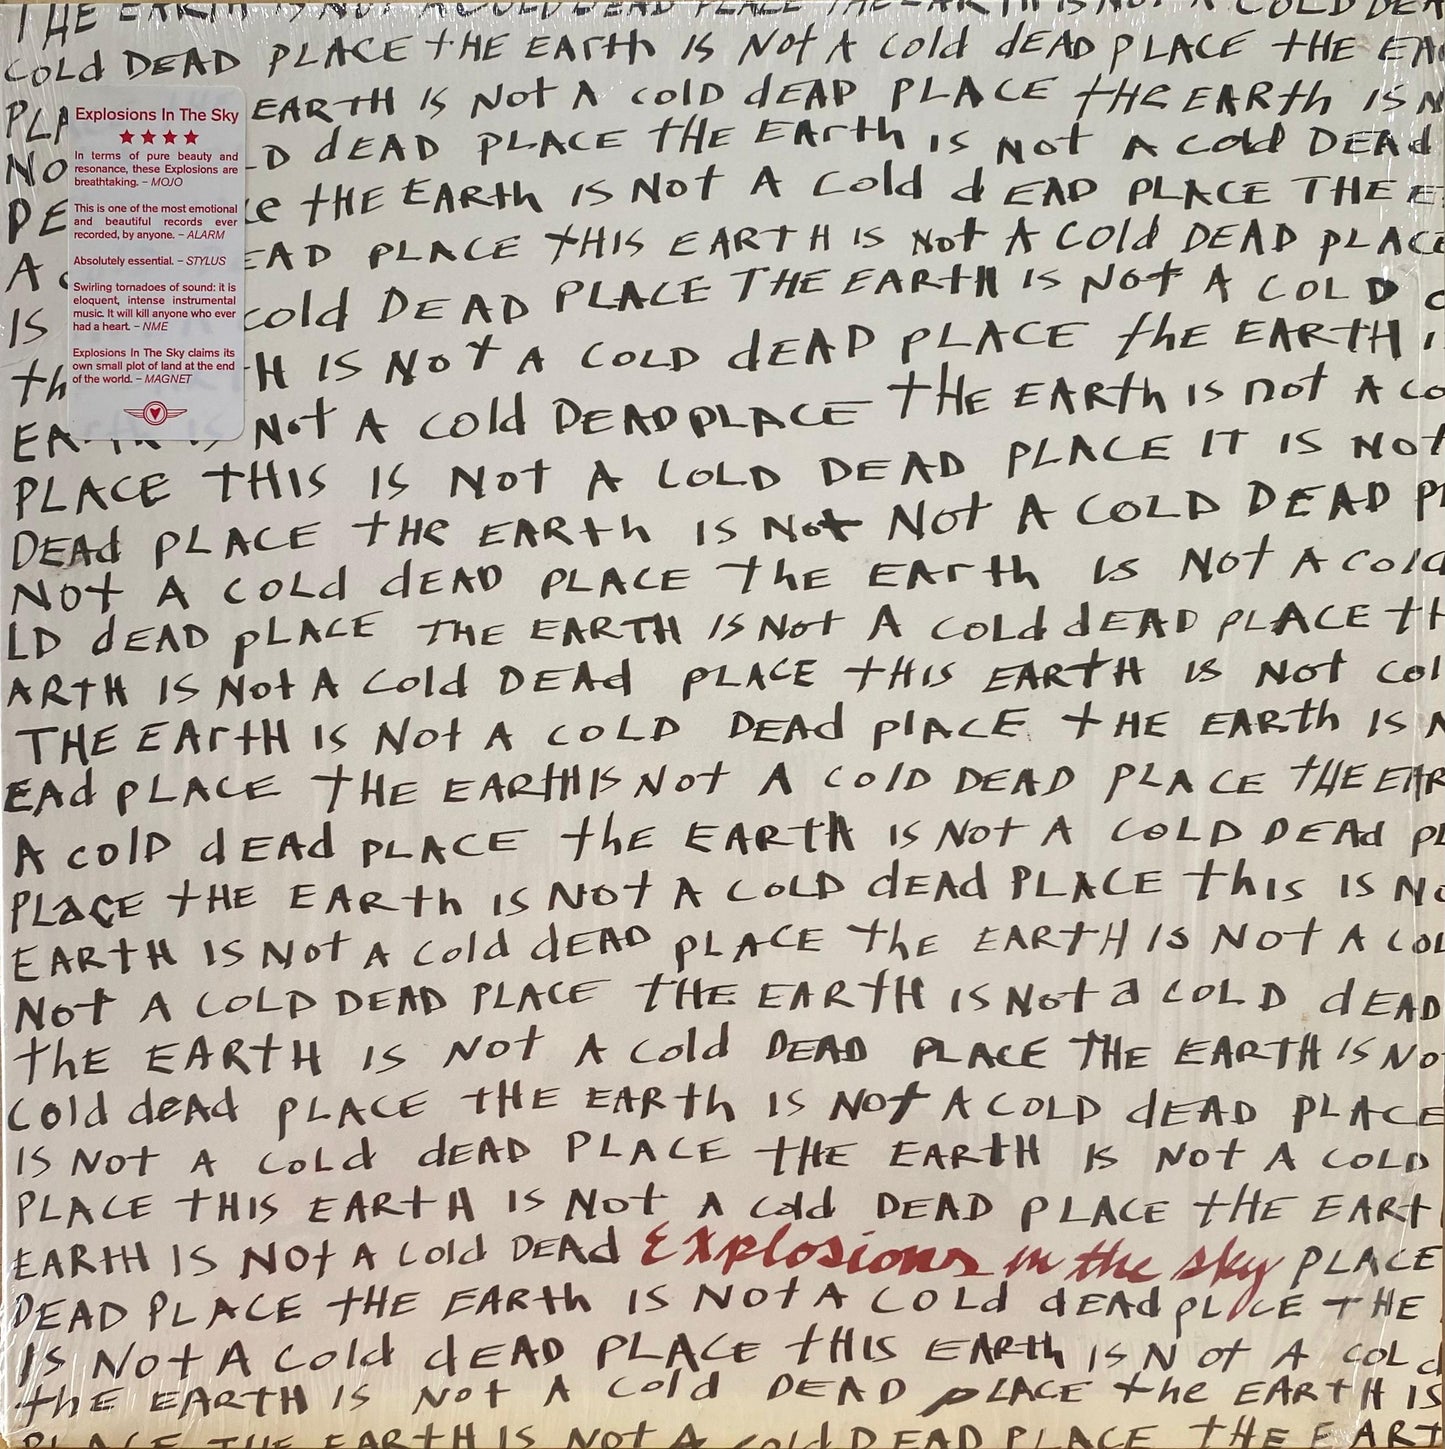 THE EARTH IS NOT A COLD DEAD PLACE THE EARTH IS NOT A COLD DEA
COLd DEAD PLACE tHE EArth IS Not A Cold dEAD PLACE tHE EA
PLA EARTH IS Not A cold dEAD PLACE tHe EARth IS N
NO LD dEAD PLACE tHE EArth IS Not A Cold DEAd
DE ce tHE EARth IS Not A Cold dEAD PLACE THE E
A C EAD PLACE tHIS EARTH IS Not A COld DEAD pLACE
IS cold DEAD PLACE THE EARtH IS Not A COLD d
th H IS Not A COLD dEAD PLACE the EARtH I
EARTH IS Not A Cold DEAD PLACE tHE EARth IS not A co
PLACE tHIS IS Not A COLD DEAD PLACE IT IS Not
DEAd PLACE tHe EARth IS Not Not A COLD DEAD PL
Not A COLd dEAD PLACE the EArth IS Not A Cold
LD dEAD pLACE THE EARTH IS Not A COLd dEAD pLACE tH
ARtH IS Not A Cold DEAd PLACE tHIS EARtH IS Not Col
THE EArtH IS Not A COLD DEAd plACE tHE EARth IS N
EAd pLACE tHE EARtH IS Not A ColD DEAD PLACE tHE EAR
A colD dEAd pLACE the EARtH IS Not A COLD DEAd pL
PLaCE tHE EARth IS Not A COLD dEAd PLACE thIS IS No
EARtH IS Not A Cold dEAD pLACE the EARtH IS Not A COL
Not A COLD DEAD PLACE tHE EARtH IS Not a COLD dEAD
thE EARtH IS Not A Cold DEAD PLACE THE EARTH IS No
Cold deAd PLACE tHE EARth IS Not A COLD dEAD PLACE
IS Not A COLd dEAD PLACE tHE EARtH IS Not A COLD
PLACE tHIS EARtH IS Not A Cold DEAD PLACE tHE EARt
EARtH IS Not A Cold DEAd Explosions in the sky PLACE
DEAD PLACE tHE EARth IS Not A COLd dEAd pLACE tHE
IS Not A Cold dEAD PLACE tHIS EARth IS Not A COL d
thE EARTH IS Not A Cold DEAD pLACE the EARtH IS
PLACE THE EARtH IS Not A cold DEAD PLACE tHE EART
Explosions In The Sky
In terms of pure beauty and
resonance, these Explosions are
breathtaking. – MOJO
This is one of the most emotional
and beautiful records ever
recorded, by anyone. – ALARM
Absolutely essential. – STYLUS
Swirling tornadoes of sound: it is
eloquent, intense instrumental
music. It will kill anyone who ever
had a heart. – NME
Explosions In The Sky claims its
own small plot of land at the end
of the world. – MAGNET